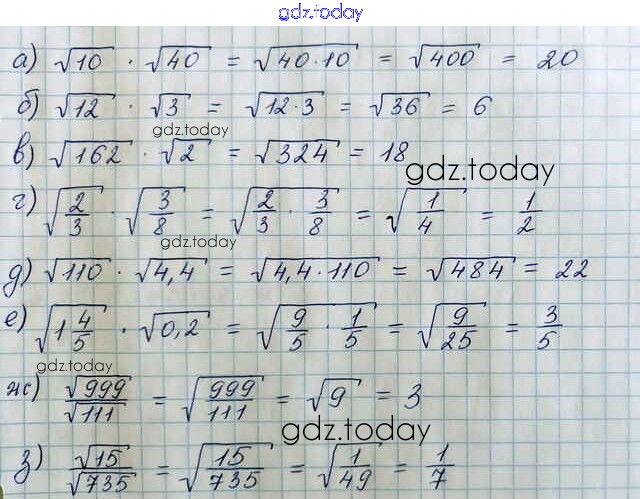 gdz.today
а) √10 · √40 = √40·10 = √400 = 20
б) √12 · √3 = √12·3 = √36 = 6
gdz.today
в) √162 · √2 = √324 = 18
gdz.today
г) √2/3 · √3/8 = √2/3 · 3/8 = √1/4 = 1/2
gdz.today
д) √110 · √4,4 = √4,4·110 = √484 = 22
е) √1 4/5 · √0,2 = √9/5 · 1/5 = √9/25 = 3/5
gdz.today
ж) √999/√111 = √999/111 = √9 = 3
gdz.today
з) √15/√735 = √15/735 = √1/49 = 1/7